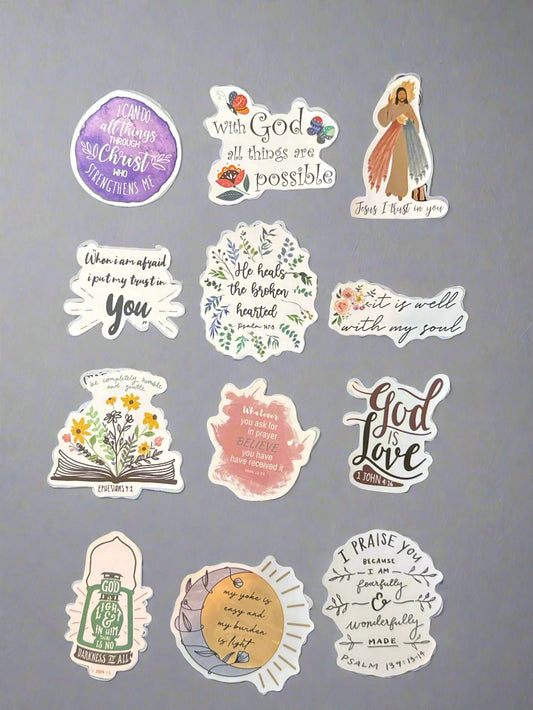 I CAN DO
all things
THROUGH
Christ
WHO
STRENGTHENS ME
with God
all things are
possible
Jesus I trust in you
When i am afraid
i put my trust in
You
He heals
the broken
hearted
it is well
with my soul
be completely humble
and gentle
EPHESIANS 4:2
Whatever
you ask for
in prayer
BELIEVE
you have
have received it
God
IS
Love
1 JOHN
GOD
IS
LIGHT
&
IN HIM
THERE
IS NO
DARKNESS AT ALL
my yoke is
easy and
my burden
is light
I PRAISE YOU
BECAUSE
I AM
fearfully
&
wonderfully
MADE
PSALM 139:13-14